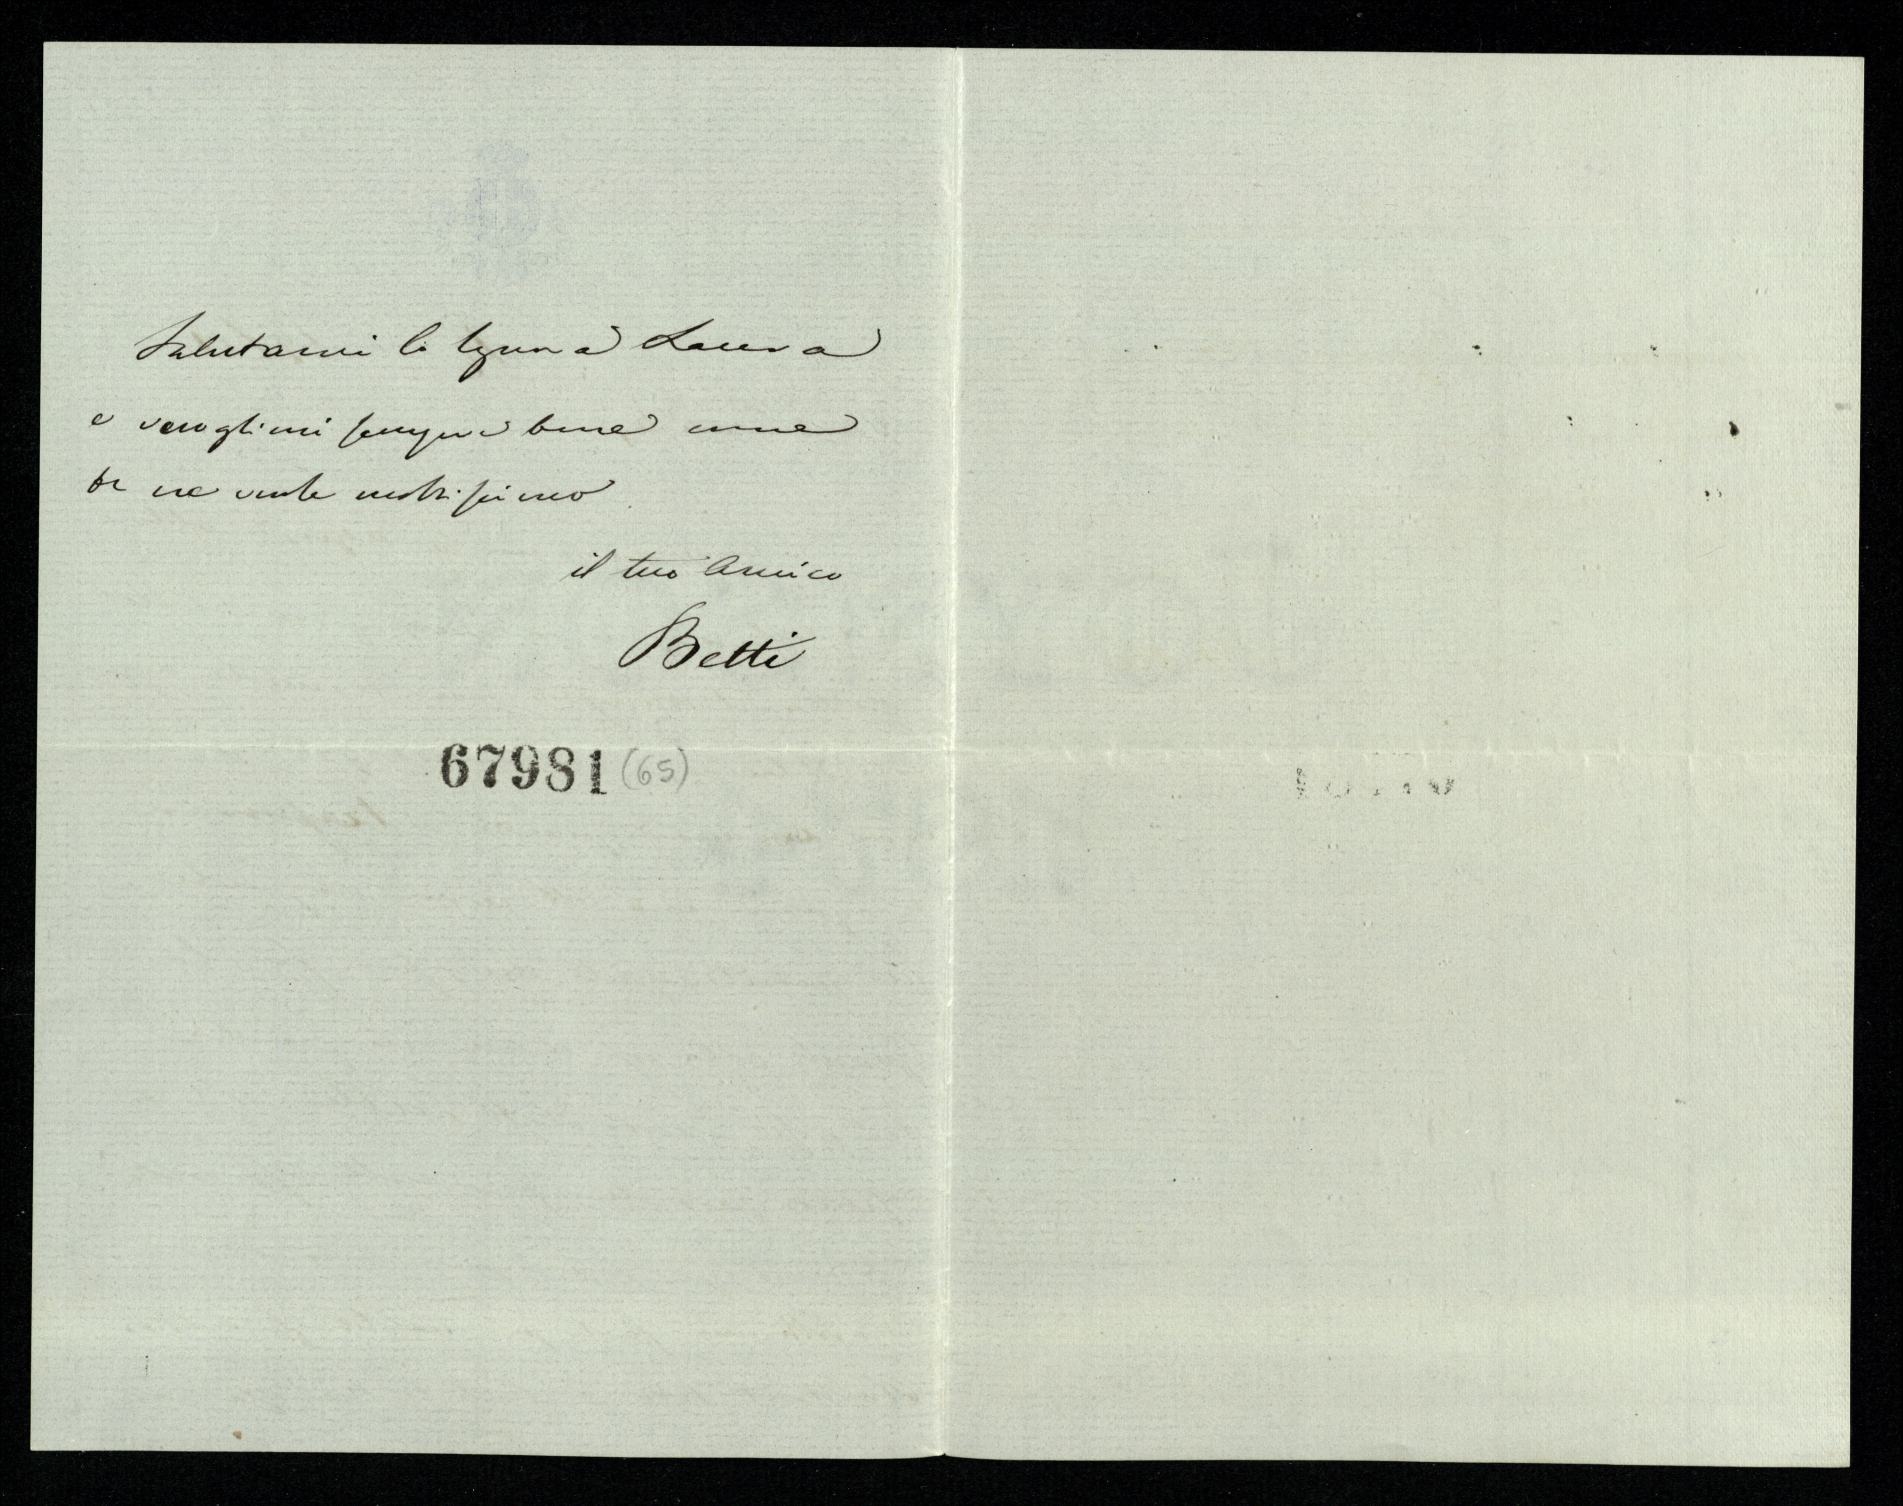 Salutami la Signora Laura
e vogliimi sempre bene come
te ne vuole moltissimo
il tuo Amico
Betti
67981 (65)